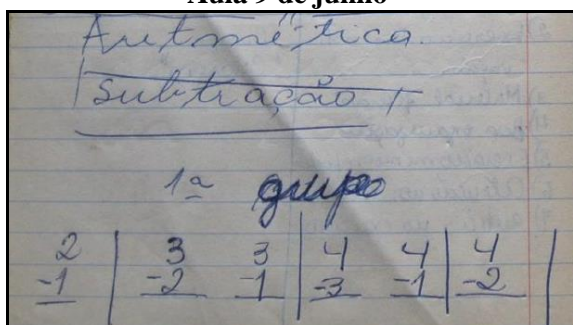 Aula 9 de junho
Aritmética.
Subtração
1º grupo
2 | 3 3 | 4 4 | 4 |
-1 | -2 -1 | -3 -1 | -2 |